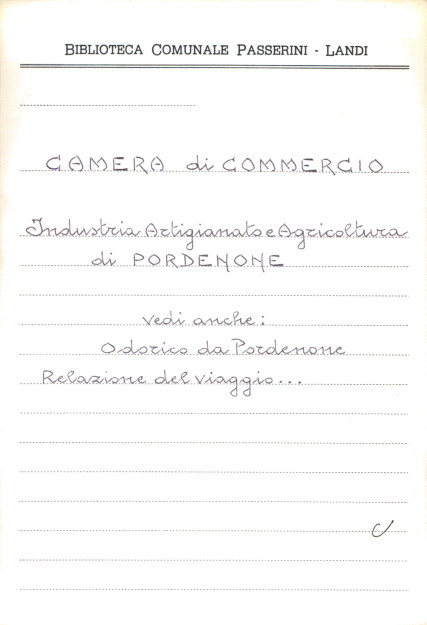 BIBLIOTECA COMUNALE PASSERINI - LANDI
CAMERA di COMMERCIO
Industria Artigianato e Agricoltura
di PORDENONE
vedi anche:
Odorico da Pordenone
Relazione del viaggio...